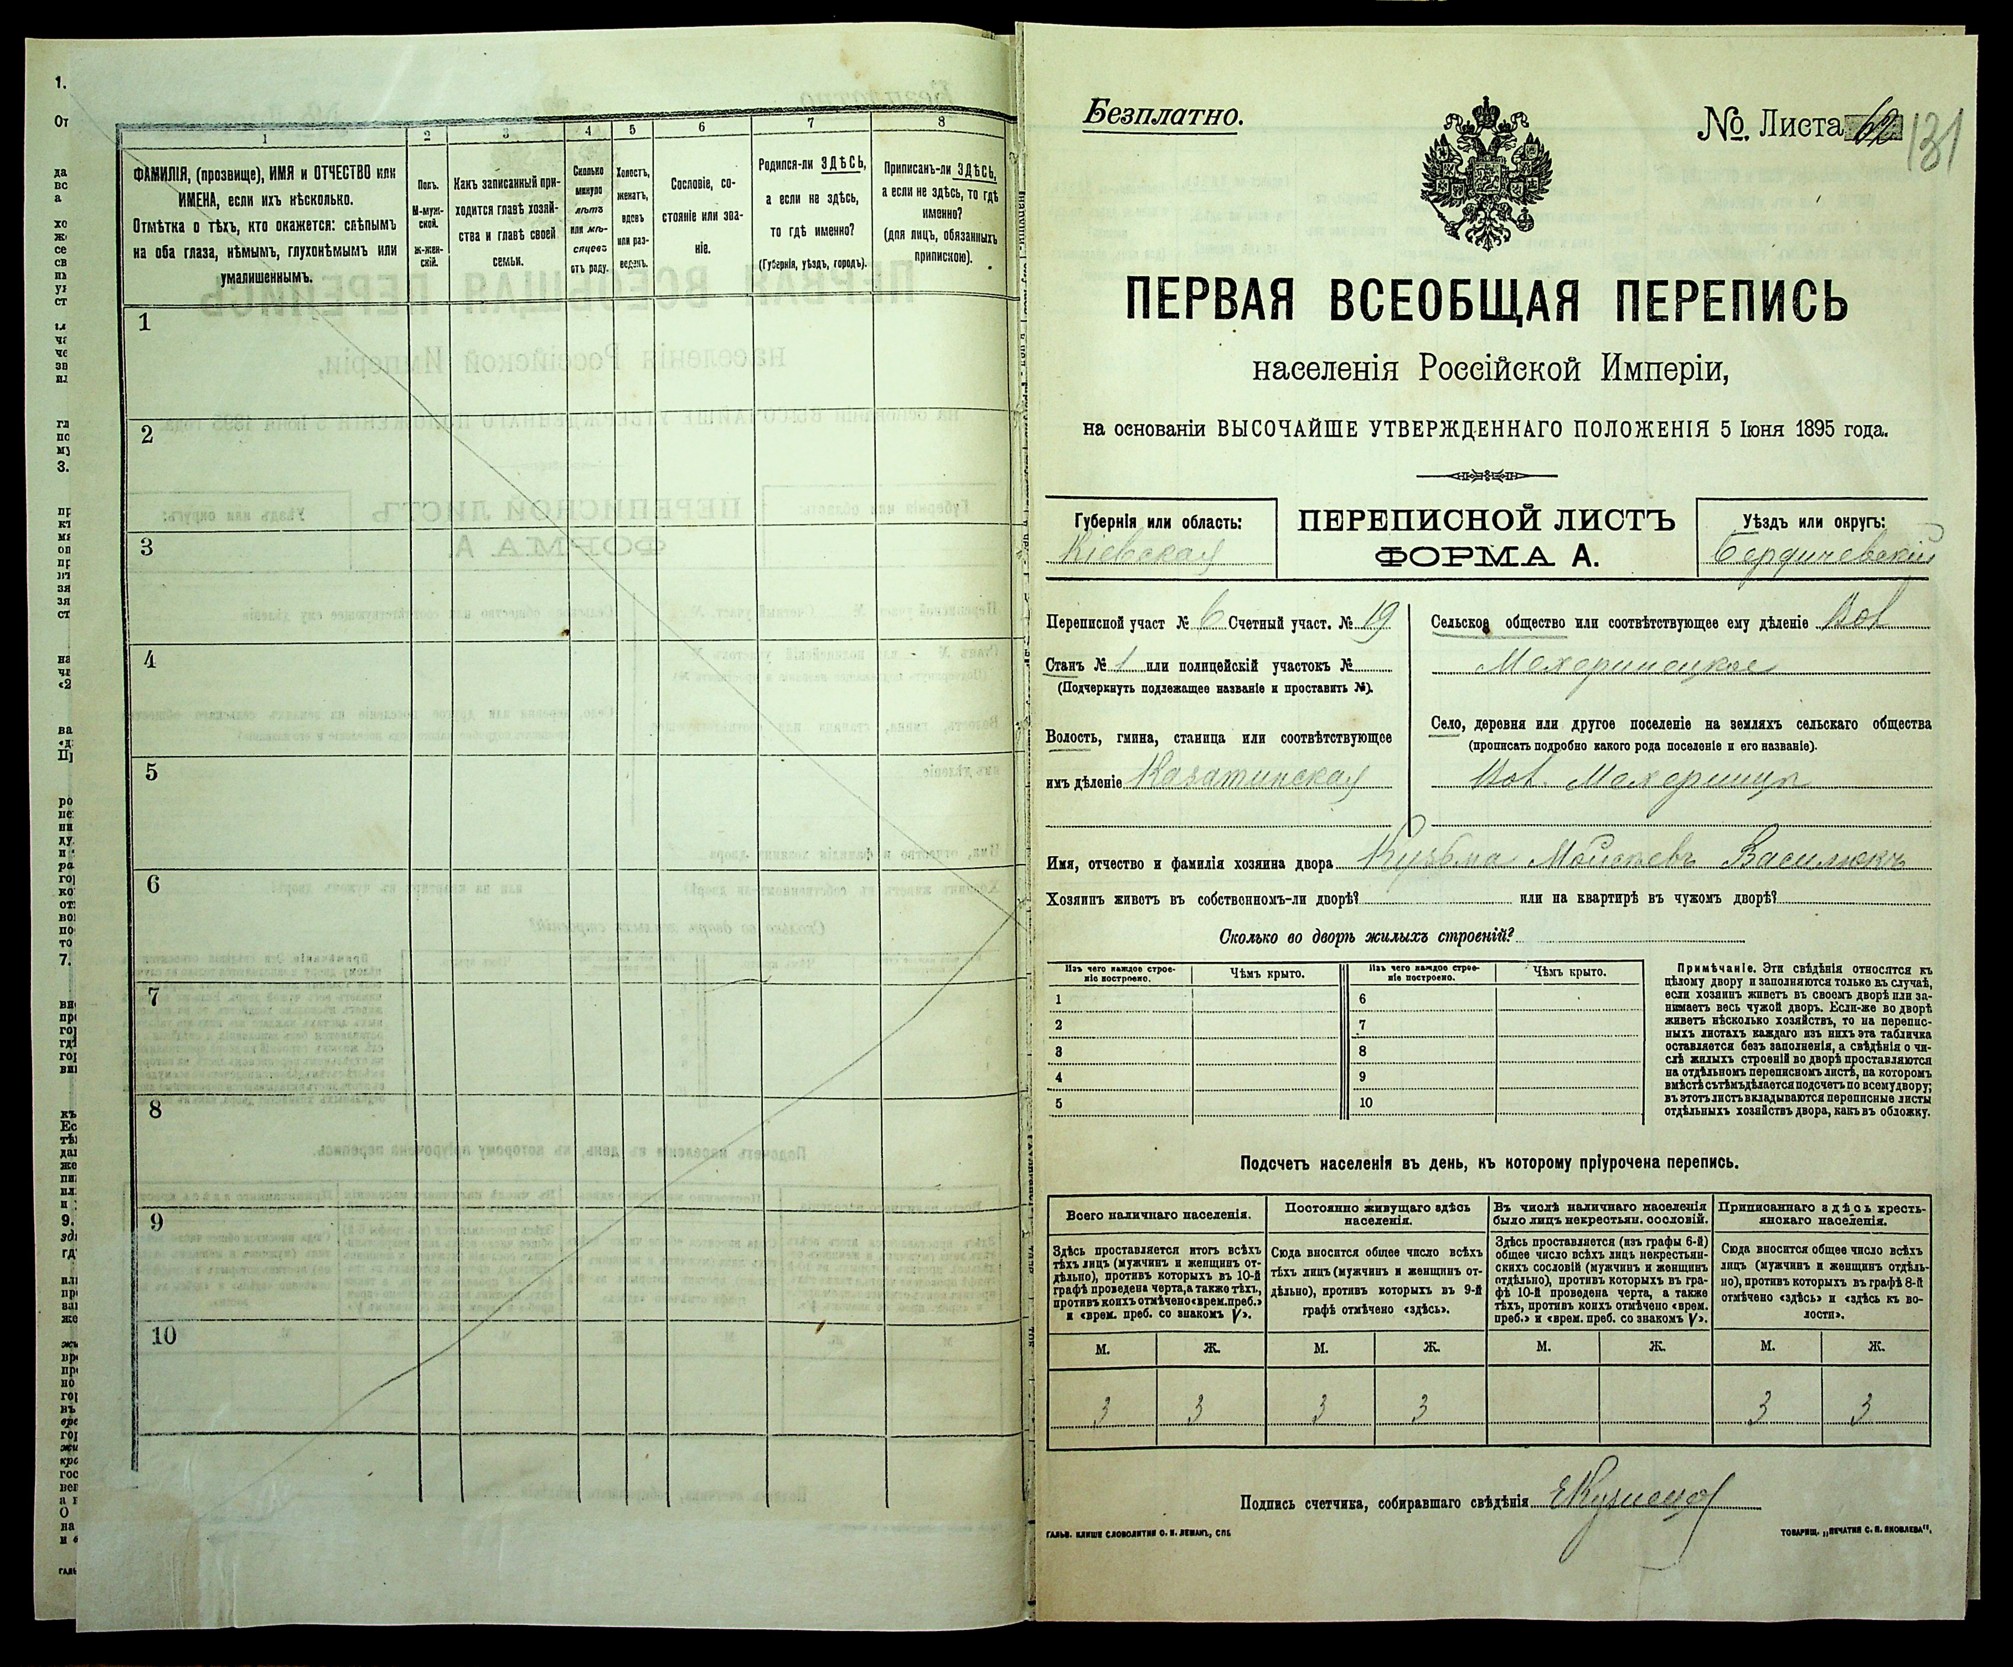 1 2 3 4 5 6 7 8
ФАМИЛІЯ, (прозвище), ИМЯ и ОТЧЕСТВО или
ИМЕНА, если ихъ нѣсколько.
Отмѣтка о тѣхъ, кто окажется: слѣпымъ
на оба глаза, нѣмымъ, глухонѣмымъ или
умалишеннымъ.
Полъ.
М-муж-
ской.
Ж-жен-
скій.
Какъ записанный при-
ходится главѣ хозяй-
ства и главѣ своей
семьи.
Сколько
минуло
лѣтъ
или мѣ-
сяцевъ
отъ роду.
Холостъ,
женатъ,
вдовъ
или раз-
веденъ.
Сословіе, со-
стояніе или зва-
ніе.
Родился-ли ЗДѢСЬ,
а если не здѣсь,
то гдѣ именно?
(Губернія, уѣздъ, городъ).
Приписанъ-ли ЗДѢСЬ,
а если не здѣсь, то гдѣ
именно?
(для лицъ, обязанныхъ
припискою).
1
2
3
4
5
6
7
8
9
10
Безплатно.
№ Листа 62
131
ПЕРВАЯ ВСЕОБЩАЯ ПЕРЕПИСЬ
населенія Россійской Имперіи,
на основаніи ВЫСОЧАЙШЕ УТВЕРЖДЕННАГО ПОЛОЖЕНІЯ 5 Іюня 1895 года.
Губернія или область:
Кіевская
ПЕРЕПИСНОЙ ЛИСТЪ
ФОРМА А.
Уѣздъ или округъ:
Бердичевскій
Переписной участ № 6 Счетный участ. № 19
Станъ № 1 или полицейскій участокъ №
(Подчеркнуть подлежащее названіе и проставить №).
Волость, гмина, станица или соотвѣтствующее
имъ дѣленіе Козатинская
Сельское общество или соотвѣтствующее ему дѣленіе
Махаринецкое
Село, деревня или другое поселеніе на земляхъ сельскаго общества
(прописать подробно какого рода поселеніе и его названіе).
Махаринцы
Имя, отчество и фамилія хозяина двора Кузьма Моисеевъ Василюкъ
Хозяинъ живетъ въ собственномъ-ли дворѣ? или на квартирѣ въ чужомъ дворѣ?
Сколько во дворѣ жилыхъ строеній?
Изъ чего каждое строе-
ніе построено.
Чѣмъ крыто.
Изъ чего каждое строе-
ніе построено.
Чѣмъ крыто.
1 6
2 7
3 8
4 9
5 10
Примѣчаніе. Эти свѣдѣнія относятся къ
цѣлому двору и заполняются только въ случаѣ,
если хозяинъ живетъ въ своемъ дворѣ или за-
нимаетъ весь чужой дворъ. Если-же во дворѣ
живетъ нѣсколько хозяйствъ, то на перепис-
ныхъ листахъ каждаго изъ нихъ эта табличка
оставляется безъ заполненія, а свѣдѣнія о чи-
слѣ жилыхъ строеній во дворѣ проставляются
на отдѣльномъ переписномъ листѣ, на которомъ
вмѣстѣ съ тѣмъ дѣлается подсчетъ по всему двору;
въ этотъ листъ вкладываются переписные листы
отдѣльныхъ хозяйствъ двора, какъ въ обложку.
Подсчетъ населенія въ день, къ которому пріурочена перепись.
Всего наличнаго населенія.
Здѣсь проставляется итогъ всѣхъ
тѣхъ лицъ (мужчинъ и женщинъ от-
дѣльно), противъ которыхъ въ 10-й
графѣ проведена черта, а также тѣхъ,
противъ коихъ отмѣчено «врем. преб.»
и «врем. преб. со знакомъ V».
Постоянно живущаго здѣсь
населенія.
Сюда вносится общее число всѣхъ
тѣхъ лицъ (мужчинъ и женщинъ от-
дѣльно), противъ которыхъ въ 9-й
графѣ отмѣчено «здѣсь».
Въ числѣ наличнаго населенія
было лицъ некрестьян. сословій.
Здѣсь проставляется (изъ графы 6-й)
общее число всѣхъ лицъ некрестьян-
скихъ сословій (мужчинъ и женщинъ
отдѣльно), противъ которыхъ въ гра-
фѣ 10-й проведена черта, а также
тѣхъ, противъ коихъ отмѣчено «врем.
преб.» и «врем. преб. со знакомъ V».
Приписаннаго здѣсь кресть-
янскаго населенія.
Сюда вносится общее число всѣхъ
лицъ (мужчинъ и женщинъ отдѣль-
но), противъ которыхъ въ графѣ 8-й
отмѣчено «здѣсь» и «здѣсь къ во-
лости».
М. Ж. М. Ж. М. Ж. М. Ж.
3 3 3 3 3 3
Подпись счетчика, собиравшаго свѣдѣнія
ГАЛЬВ. КЛИШЕ СЛОВОЛИТНИ О. И. ЛЕМАНЪ, СПБ.
ТОВАРИЩ. „ПЕЧАТНЯ С. П. ЯКОВЛЕВА".